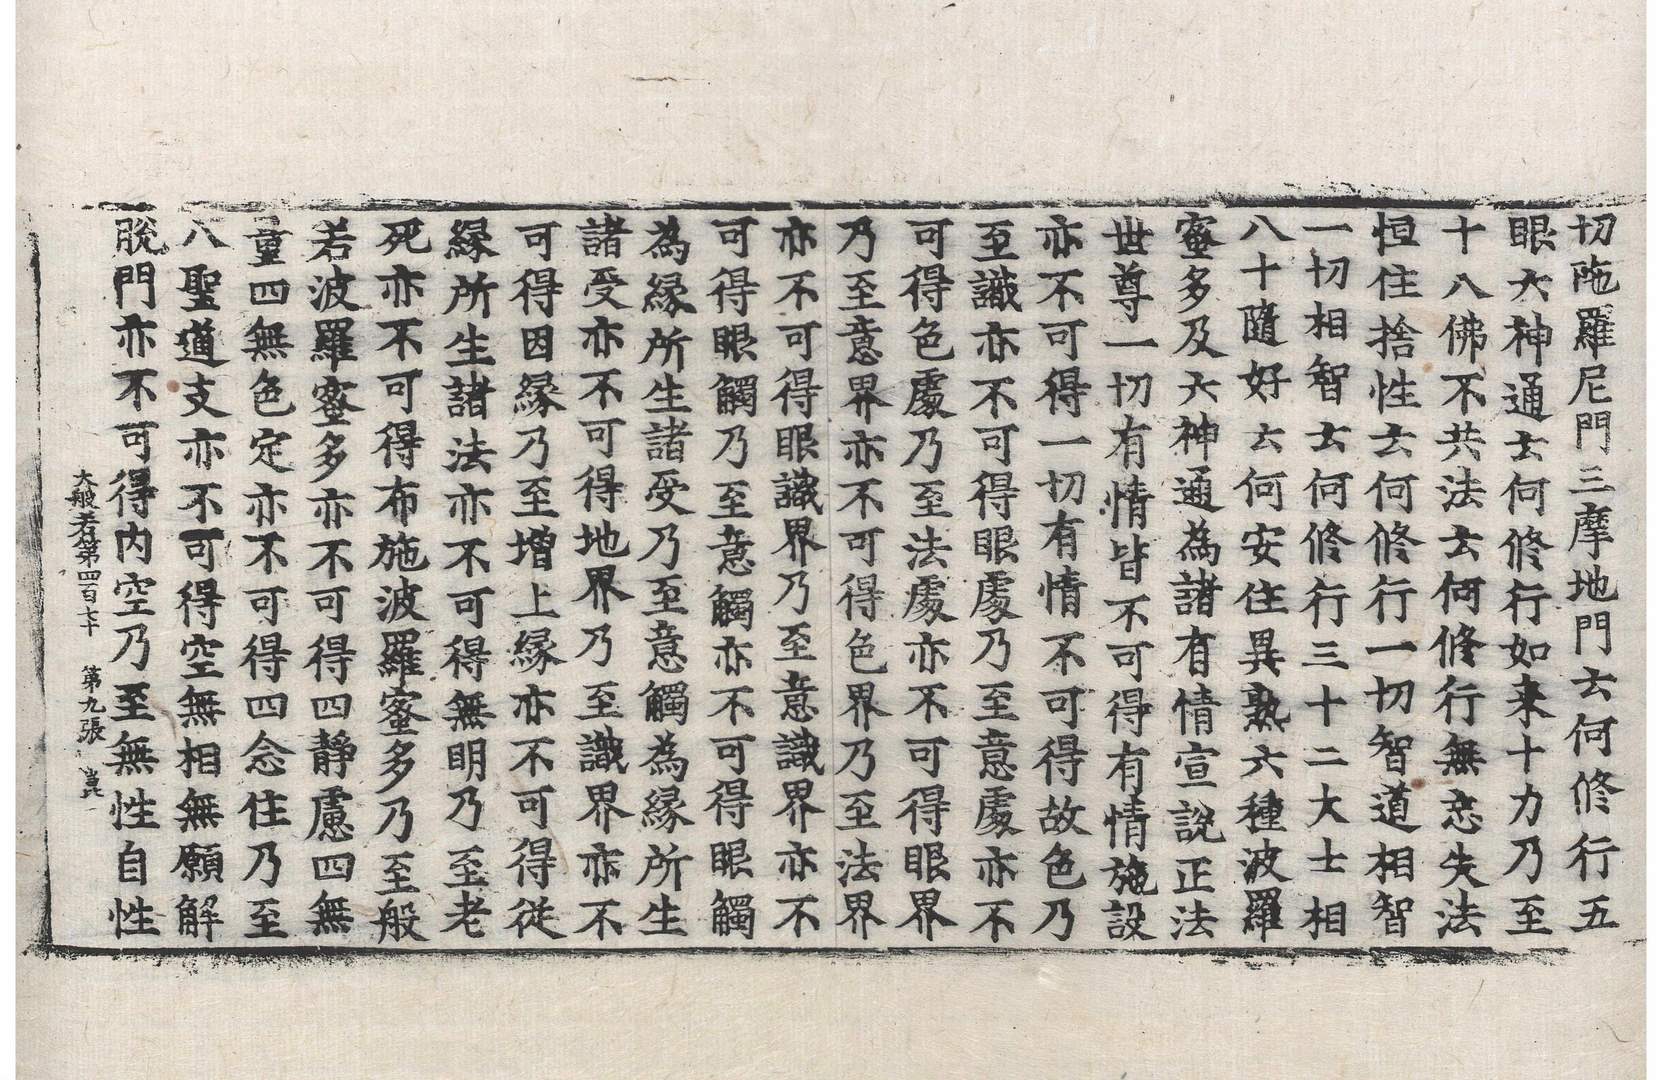 切陁羅尼門三摩地門云何修行五
眼六神通云何修行如来十力乃至
十八佛不共法云何修行無忘失法
恒住捨性云何修行一切智道相智
一切相智云何修行三十二大士相
八十隨好云何安住異熟六種波羅
蜜多及六神通為諸有情宣說正法
世尊一切有情皆不可得有情施設
亦不可得一切有情不可得故色乃
至識亦不可得眼處乃至意處亦不
可得色處乃至法處亦不可得眼界
乃至意界亦不可得色界乃至法界
亦不可得眼識界乃至意識界亦不
可得眼觸乃至意觸亦不可得眼觸
為緣所生諸受乃至意觸為緣所生
諸受亦不可得地界乃至識界亦不
可得因緣乃至增上緣亦不可得從
緣所生諸法亦不可得無明乃至老
死亦不可得布施波羅蜜多乃至般
若波羅蜜多亦不可得四靜慮四無
量四無色定亦不可得四念住乃至
八聖道支亦不可得空無相無願解
脫門亦不可得內空乃至無性自性
大般若第四百七十 第九張